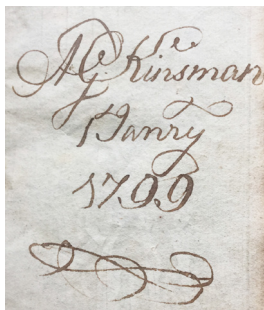 AG. Kinsman
Janry
1799